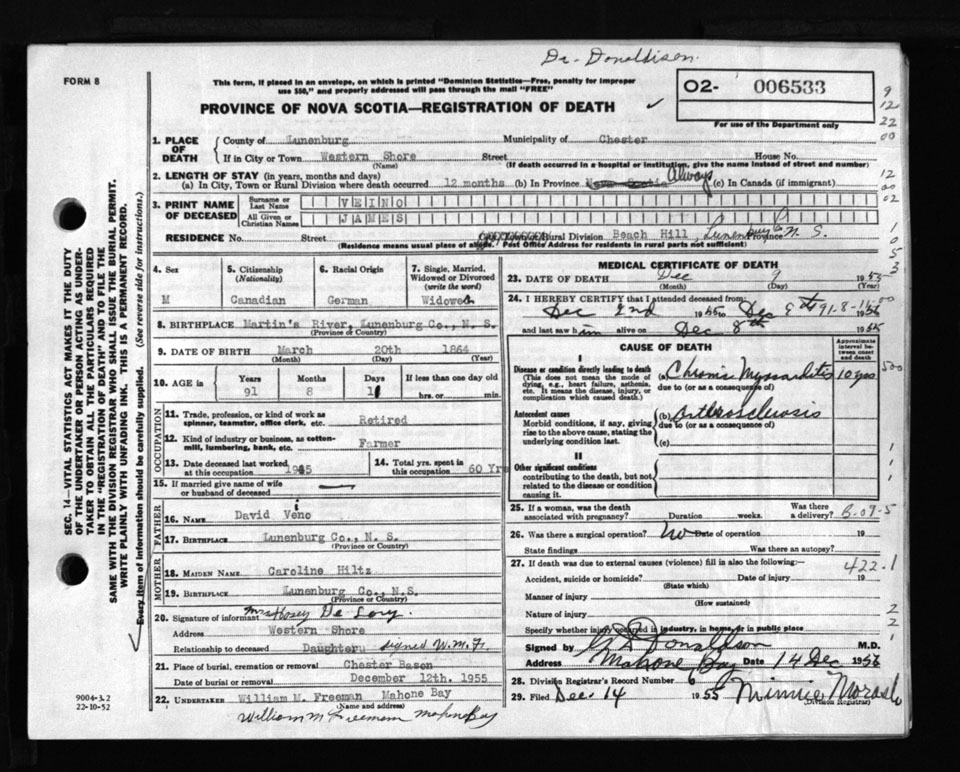 Dr. Donaldson
FORM 8
This form, if placed in an envelope, on which is printed "Dominion Statistics—Free, penalty for improper
use $50," and properly addressed will pass through the mail "FREE"
PROVINCE OF NOVA SCOTIA—REGISTRATION OF DEATH
O2- 006533
For use of the Department only
9
12
22
00
1. PLACE OF DEATH
County of Lunenburg Municipality of Chester
If in City or Town Western Shore Street House No.
(Name) (If death occurred in a hospital or institution, give the name instead of street and number)
2. LENGTH OF STAY (in years, months and days)
(a) In City, Town or Rural Division where death occurred 12 months (b) In Province Nova Scotia Always (c) In Canada (if immigrant)
12
00
02
3. PRINT NAME OF DECEASED
Surname or Last Name VEINO
All Given or Christian Names JAMES
RESIDENCE No. Street Rural Division Beach Hill, Lunenburg Co Province N. S.
(Residence means usual place of abode. Post Office Address for residents in rural parts not sufficient)
1
0
5
3
4. Sex
M
5. Citizenship
(Nationality)
Canadian
6. Racial Origin
German
7. Single, Married, Widowed or Divorced
(write the word)
Widowed
8. BIRTHPLACE Martin's River, Lunenburg Co., N. S.
(Province or Country)
9. DATE OF BIRTH March 20th 1864
(Month) (Day) (Year)
10. AGE in
Years Months Days If less than one day old
91 8 1 hrs. or min.
OCCUPATION
11. Trade, profession, or kind of work as spinner, teamster, office clerk, etc. Retired
12. Kind of industry or business, as cotton-mill, lumbering, bank, etc. Farmer
13. Date deceased last worked at this occupation 1945
14. Total yrs. spent in this occupation 60 Yrs
15. If married give name of wife or husband of deceased —
FATHER
16. NAME David Veino
17. BIRTHPLACE Lunenburg Co., N. S.
(Province or Country)
MOTHER
18. MAIDEN NAME Caroline Hiltz
19. BIRTHPLACE Lunenburg Co., N.S.
(Province or Country)
20. Signature of informant Mrs De Lory.
Address Western Shore
Relationship to deceased Daughter signed W.M.F.
21. Place of burial, cremation or removal Chester Basen
Date of burial or removal December 12th. 1955
22. UNDERTAKER William M. Freeman Mahone Bay
(Name and address)
William M Freeman Mahone Bay
MEDICAL CERTIFICATE OF DEATH
23. DATE OF DEATH Dec 9 1955
(Month) (Day)
24. I HEREBY CERTIFY that I attended deceased from:
Dec 2nd 1955 to Dec 8th 91-8- 1955
and last saw him alive on Dec 8th 1955
CAUSE OF DEATH
Approximate interval between onset and death
I
Disease or condition directly leading to death
(This does not mean the mode of dying, e.g., heart failure, asthenia, etc. It means the disease, injury, or complication which caused death.)
(a) Chronic Myocarditis 10 yrs
due to (or as a consequence of)
500
Antecedent causes
Morbid conditions, if any, giving rise to the above cause, stating the underlying condition last.
(b) Arthrosclerosis
due to (or as a consequence of)
(c)
II
Other significant conditions
contributing to the death, but not related to the disease or condition causing it.
1
1
1
25. If a woman, was the death associated with pregnancy? Duration weeks. Was there a delivery? B-09-5
26. Was there a surgical operation? No Date of operation 19
State findings Was there an autopsy?
27. If death was due to external causes (violence) fill in also the following:— 422.1
Accident, suicide or homicide? Date of injury 19
(State which)
Manner of injury
(How sustained)
Nature of injury
Specify whether injury occurred in industry, in home, or in public place
2
2
1
Signed by Donaldson M.D.
Address Mahone Bay Date 14 Dec 1955
28. Division Registrar's Record Number 6
29. Filed Dec. 14 1955 Minnie
(Division Registrar)
SEC. 14—VITAL STATISTICS ACT MAKES IT THE DUTY
OF THE UNDERTAKER OR PERSON ACTING AS UNDER-
TAKER TO OBTAIN ALL THE PARTICULARS REQUIRED
IN THE "REGISTRATION OF DEATH" AND TO FILE THE
SAME WITH THE DIVISION REGISTRAR WHO SHALL ISSUE THE BURIAL PERMIT.
WRITE PLAINLY WITH UNFADING INK. THIS IS A PERMANENT RECORD.
Every item of information should be carefully supplied. (See reverse side for instructions.)
9004-3.2
22-10-52